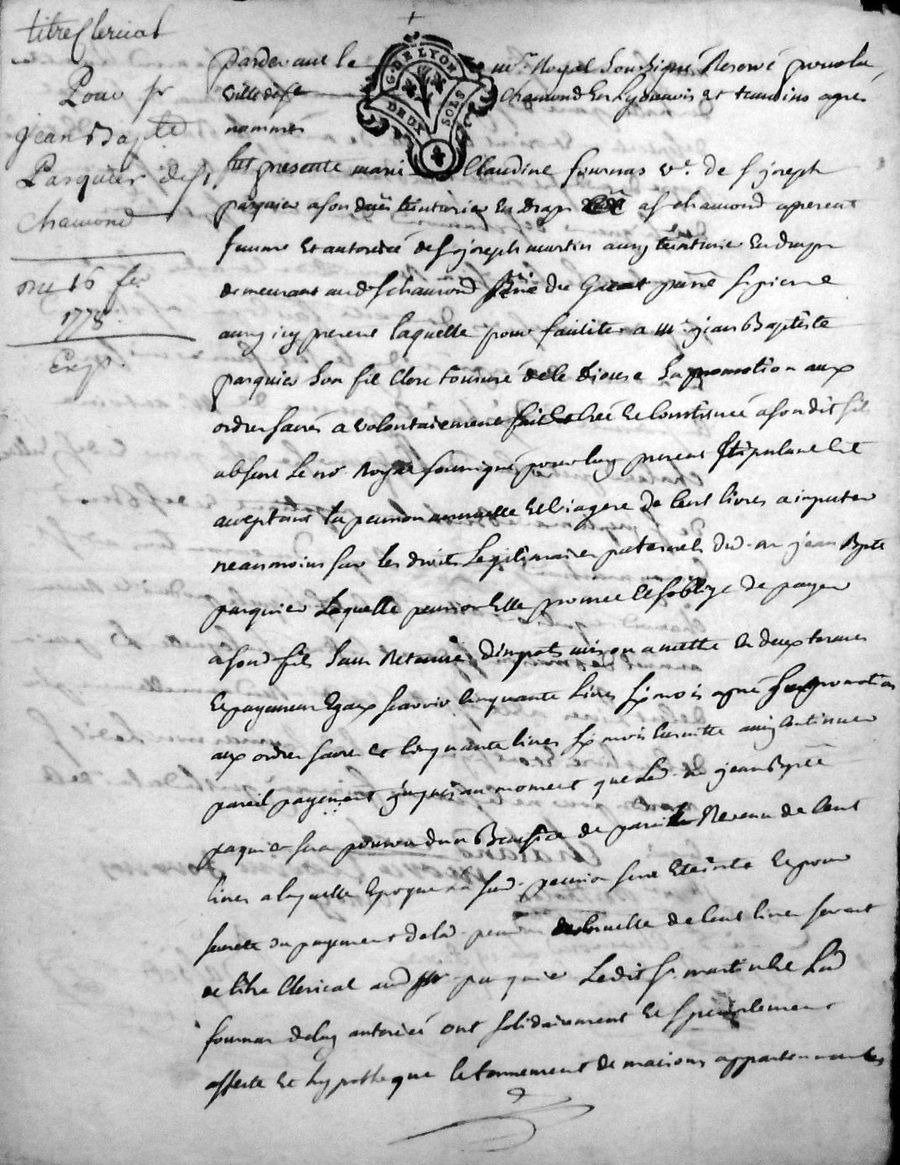 titre Clerical
Pour sr
jean Bapte
Pasquier de st
Chamond
du 16 fev
1778
Exp.
G. DE LYON
DEUX SOLS
pardevant le nre Royal soussigné Reservé pour la
ville de st chamond en Lyonnois et temoins apres
nommes
fut presente marie Claudine fournas ve. de sr joseph
pasquier a son deces teinturier en drap a st chamond a present
femme et autorisée de sr joseph martin aussy teinturier en drap
demeurant aud st chamond du Grand st pierre
aussy icy present laquelle pour faciliter a mre jean Baptiste
pasquier son fil Clerc tonsuré de le diocese sa promotion aux
ordres sacrés a volontairement fait creé et constitué a son dit fil
absent le nre Royal soussigné pour luy present stipulant et
acceptant la pension annuelle et viagere de Cent livres a imputer
neanmoins sur les droits Legitimaires paternels dud. mre jean Bpte
pasquier Laquelle pension Elle promet et s'oblige de payer
a sond fils sans Retenue d'impots mis ou a mettre en deux termes
et payemens Egaux scavoir Cinquante livres six mois apres sa promotion
aux ordres sacres et Cinquante livres six mois ensuitte ainsy Continuer
pareil payement jusques au moment que led. mre jean Bpte
paquier sera pourvu d'un Benefice de pareille Revenu de Cent
livres a laquelle Epoque la sud. pension sera Eteinte et pour
sureté du payement de lad. pension de Cent livres servant
de titre Clerical aud sr pasquier Ledit sr martin et lad
fournas de luy autorisée ont solidairement et specialement
affecté et hypotheque le tennement de maisons appartenantes